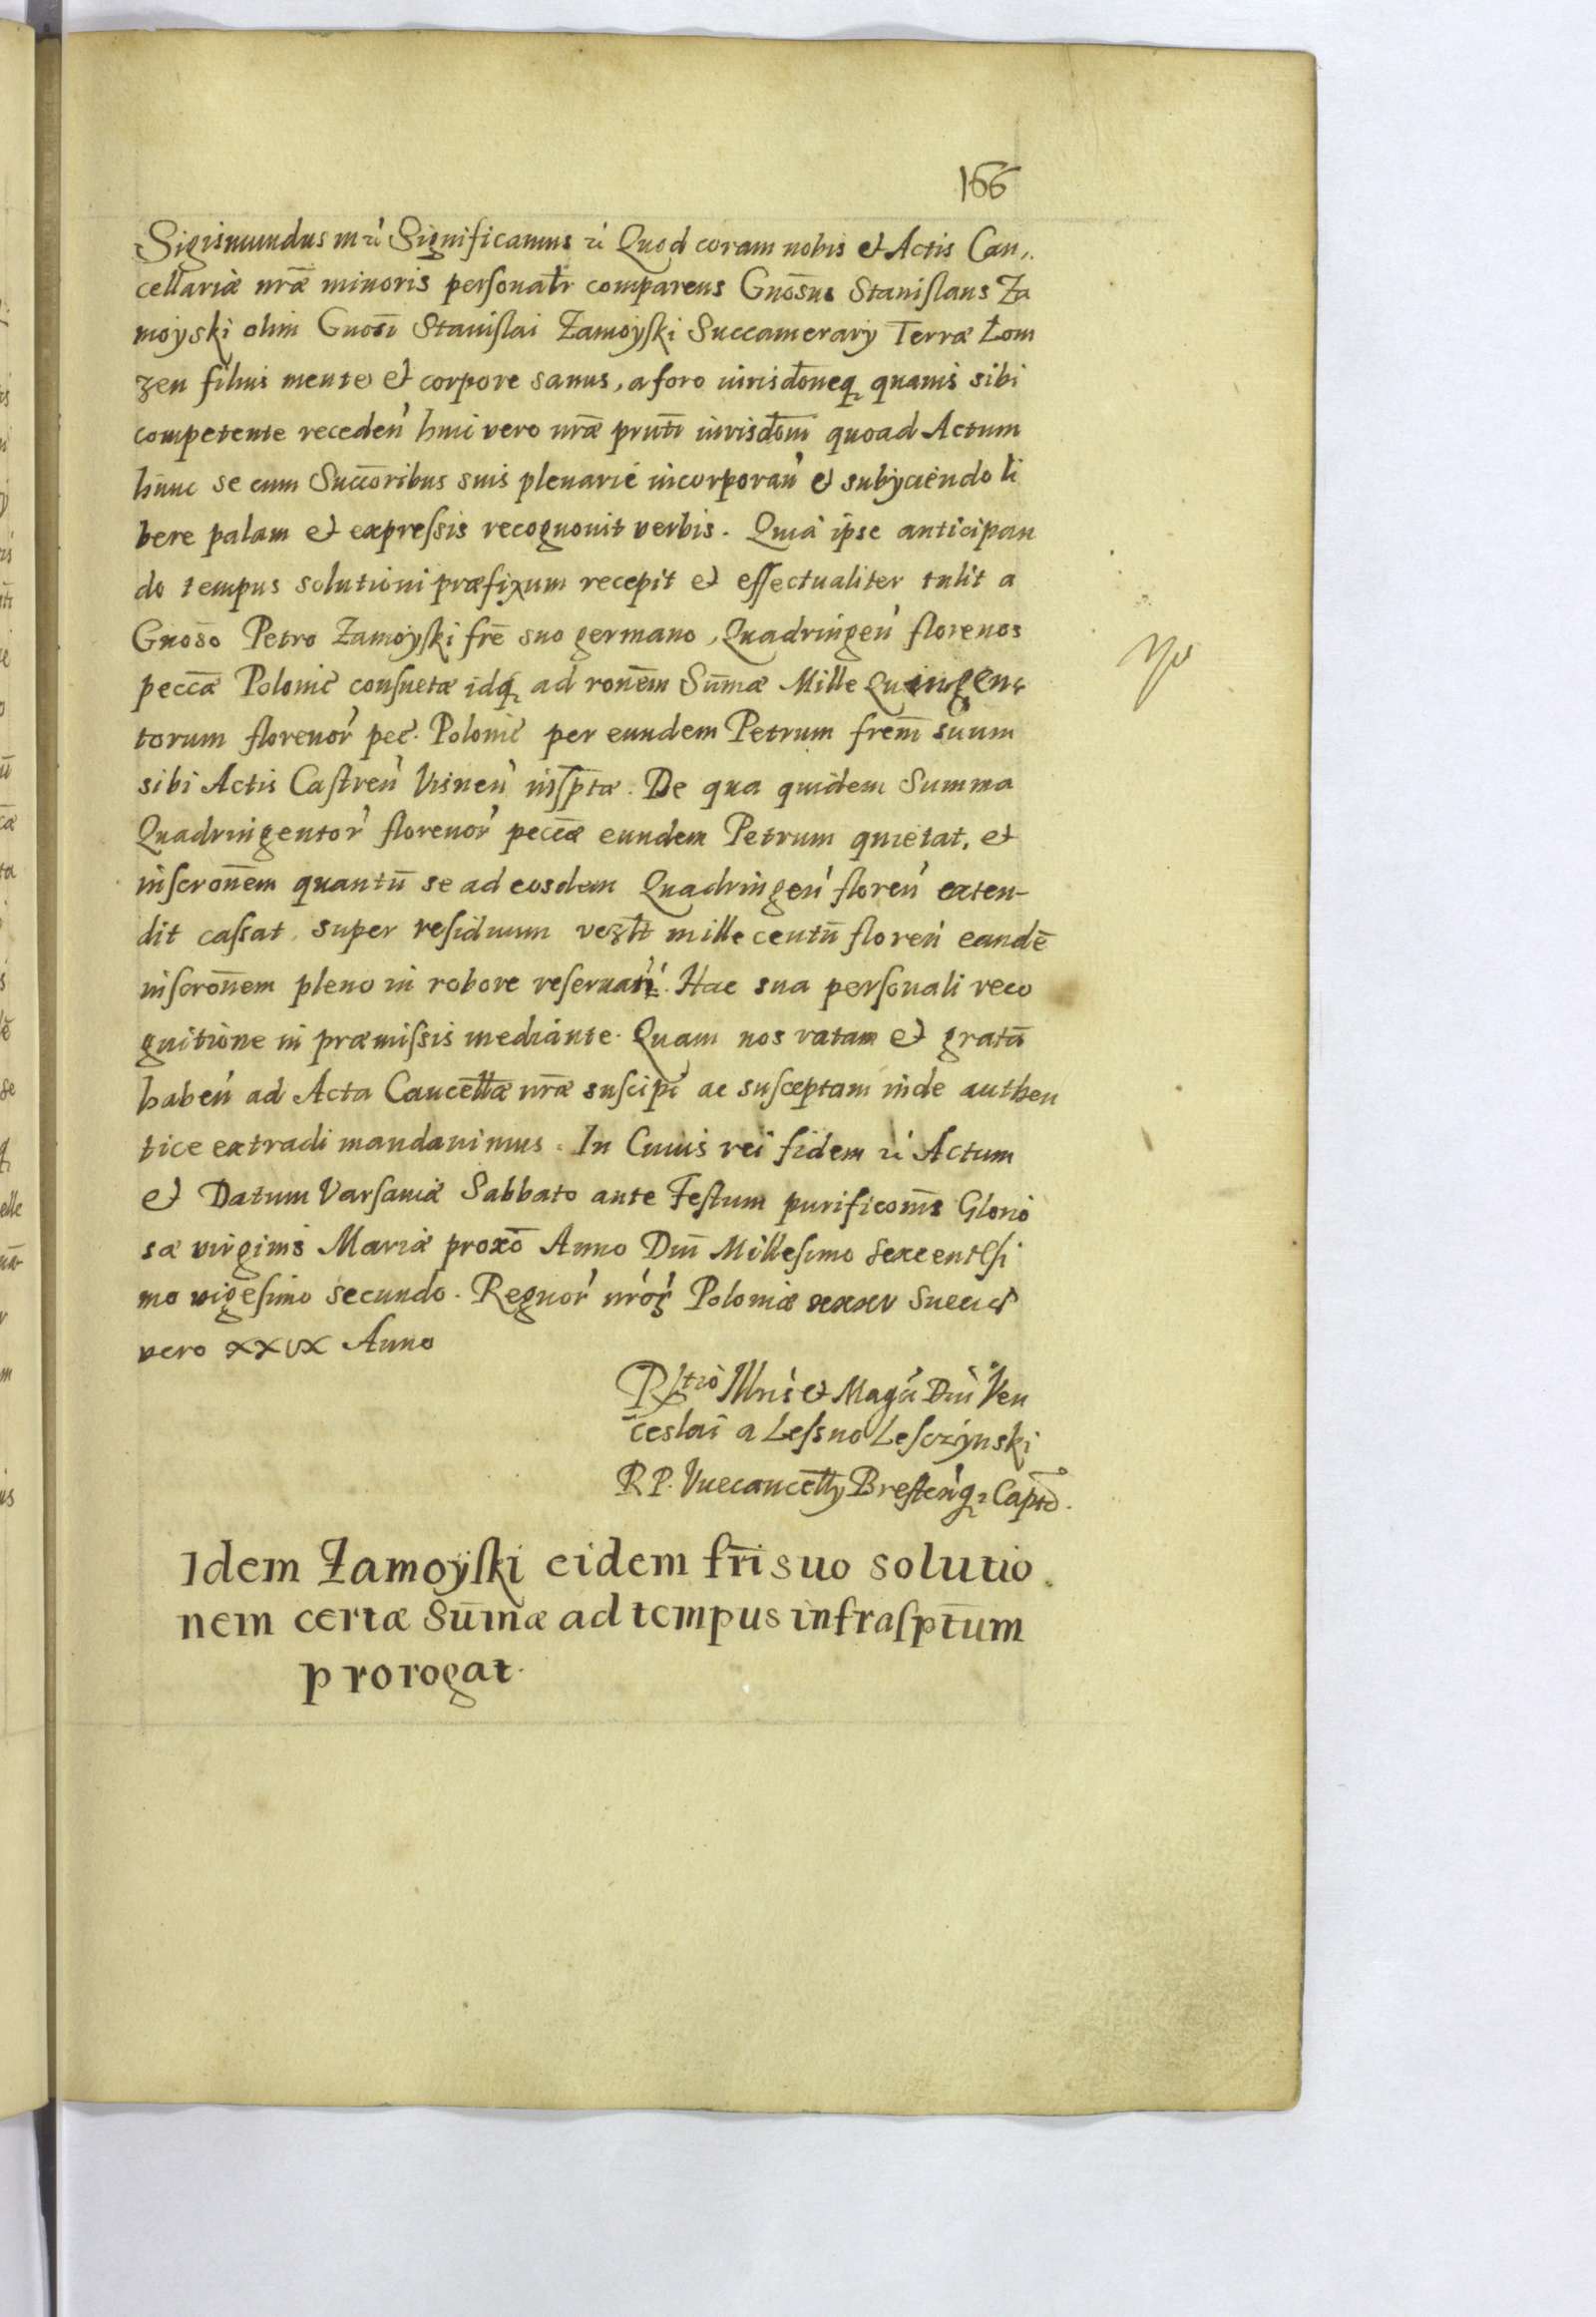 166
Sigismundus III ʒć Significamus ʒć Quod coram nobis et Actis Can,.
cellariæ nræ̃ minoris personalr̃ comparens Gnosus̃ Stanislaus Za
moÿski olim Gnosĩ Stanislai Zamoÿski Succamerarÿ Terræ Łom
zen filius mente et corpore sanus, a foro iurisdoneq̃ quauis sibi
competente receden̉ huic vero nræ̃ prntĩ iurisdom̃ quoad Actum
hunc se cum Succoribus̃ suis plenarie incorporan̉ et subÿciendo li
bere palam et expressis recognouit verbis. Quia ipse anticipan
do tempus solutioni præfixum recepit et effectualiter tulit a
Gnosõ Petro Zamoÿski frẽ suo germano, Quadringen̉ florenos
peccæ̃ Polonic̃ consuetæ idq̃ ad ronem̃ Sum̃æ Mille Quingen,
torum florenor̉ pec̃. Polonic̃ per eundem Petrum frem̃ suum
sibi Actis Castren̉ Visnen̉ insp̃tæ. De qua quidem Summa
Quadringentor̉ florenor̉ peccæ̃ eundem Petrum quietat, et
inscronem̃ quantũ se ad eosdem Quadringen̉ floren̉ exten-
dit cassat. super residuum vezlt̃ mille centũ floren̉ eandẽ
inscronem̃ pleno in robore reseruan̉. Hac sua personali reco
gnitione in præmissis mediante. Quam nos ratam et gratã
haben̉ ad Acta Cancellæ̃ nræ̃ suscipi ac susceptam inde authen
tice extradi mandauimus. In Cuius rei fidem ʒć Actum
et Datum Varsauiæ Sabbato ante Festum purificoñis Glorio
sæ virginis Mariæ proxõ Anno Dnĩ Millesimo Sexcentesi
mo vigesimo secundo. Regnor̉ nrór̃ Poloniæ xxxv Sueciæ
vero XXIX Anno
Rltiõ Illris̉ et Magcỉ Dnỉ Ven
ceslai a Lessno Lesczÿnski
R P. Vicecancellÿ̃ Bresten̉q̨ Captẽ.
Idem Zamoÿski eidem frĩ suo solutio
nem certæ Sum̃æ ad tempus infraspt̃um
prorogat.